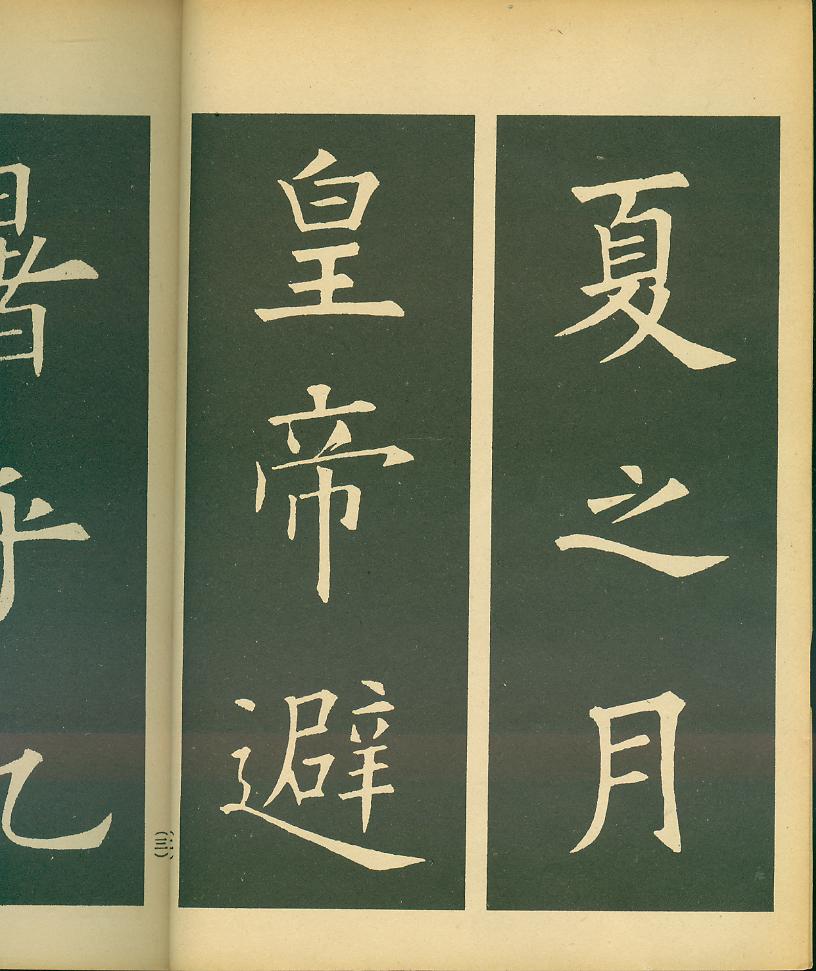 夏之月
皇帝避
暑乎
(三)